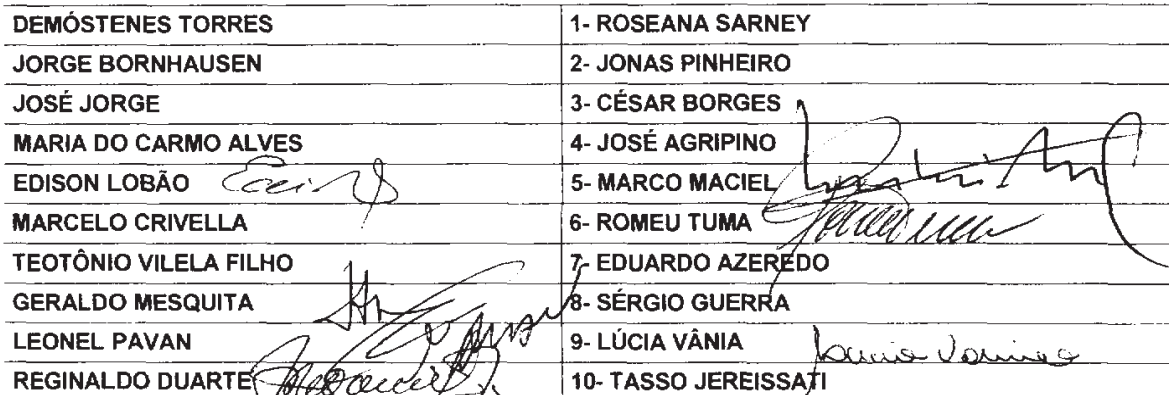 DEMÓSTENES TORRES 1- ROSEANA SARNEY
JORGE BORNHAUSEN 2- JONAS PINHEIRO
JOSÉ JORGE 3- CÉSAR BORGES
MARIA DO CARMO ALVES 4- JOSÉ AGRIPINO
EDISON LOBÃO 5- MARCO MACIEL
MARCELO CRIVELLA 6- ROMEU TUMA
TEOTÔNIO VILELA FILHO 7- EDUARDO AZEREDO
GERALDO MESQUITA 8- SÉRGIO GUERRA
LEONEL PAVAN 9- LÚCIA VÂNIA
REGINALDO DUARTE 10- TASSO JEREISSATI